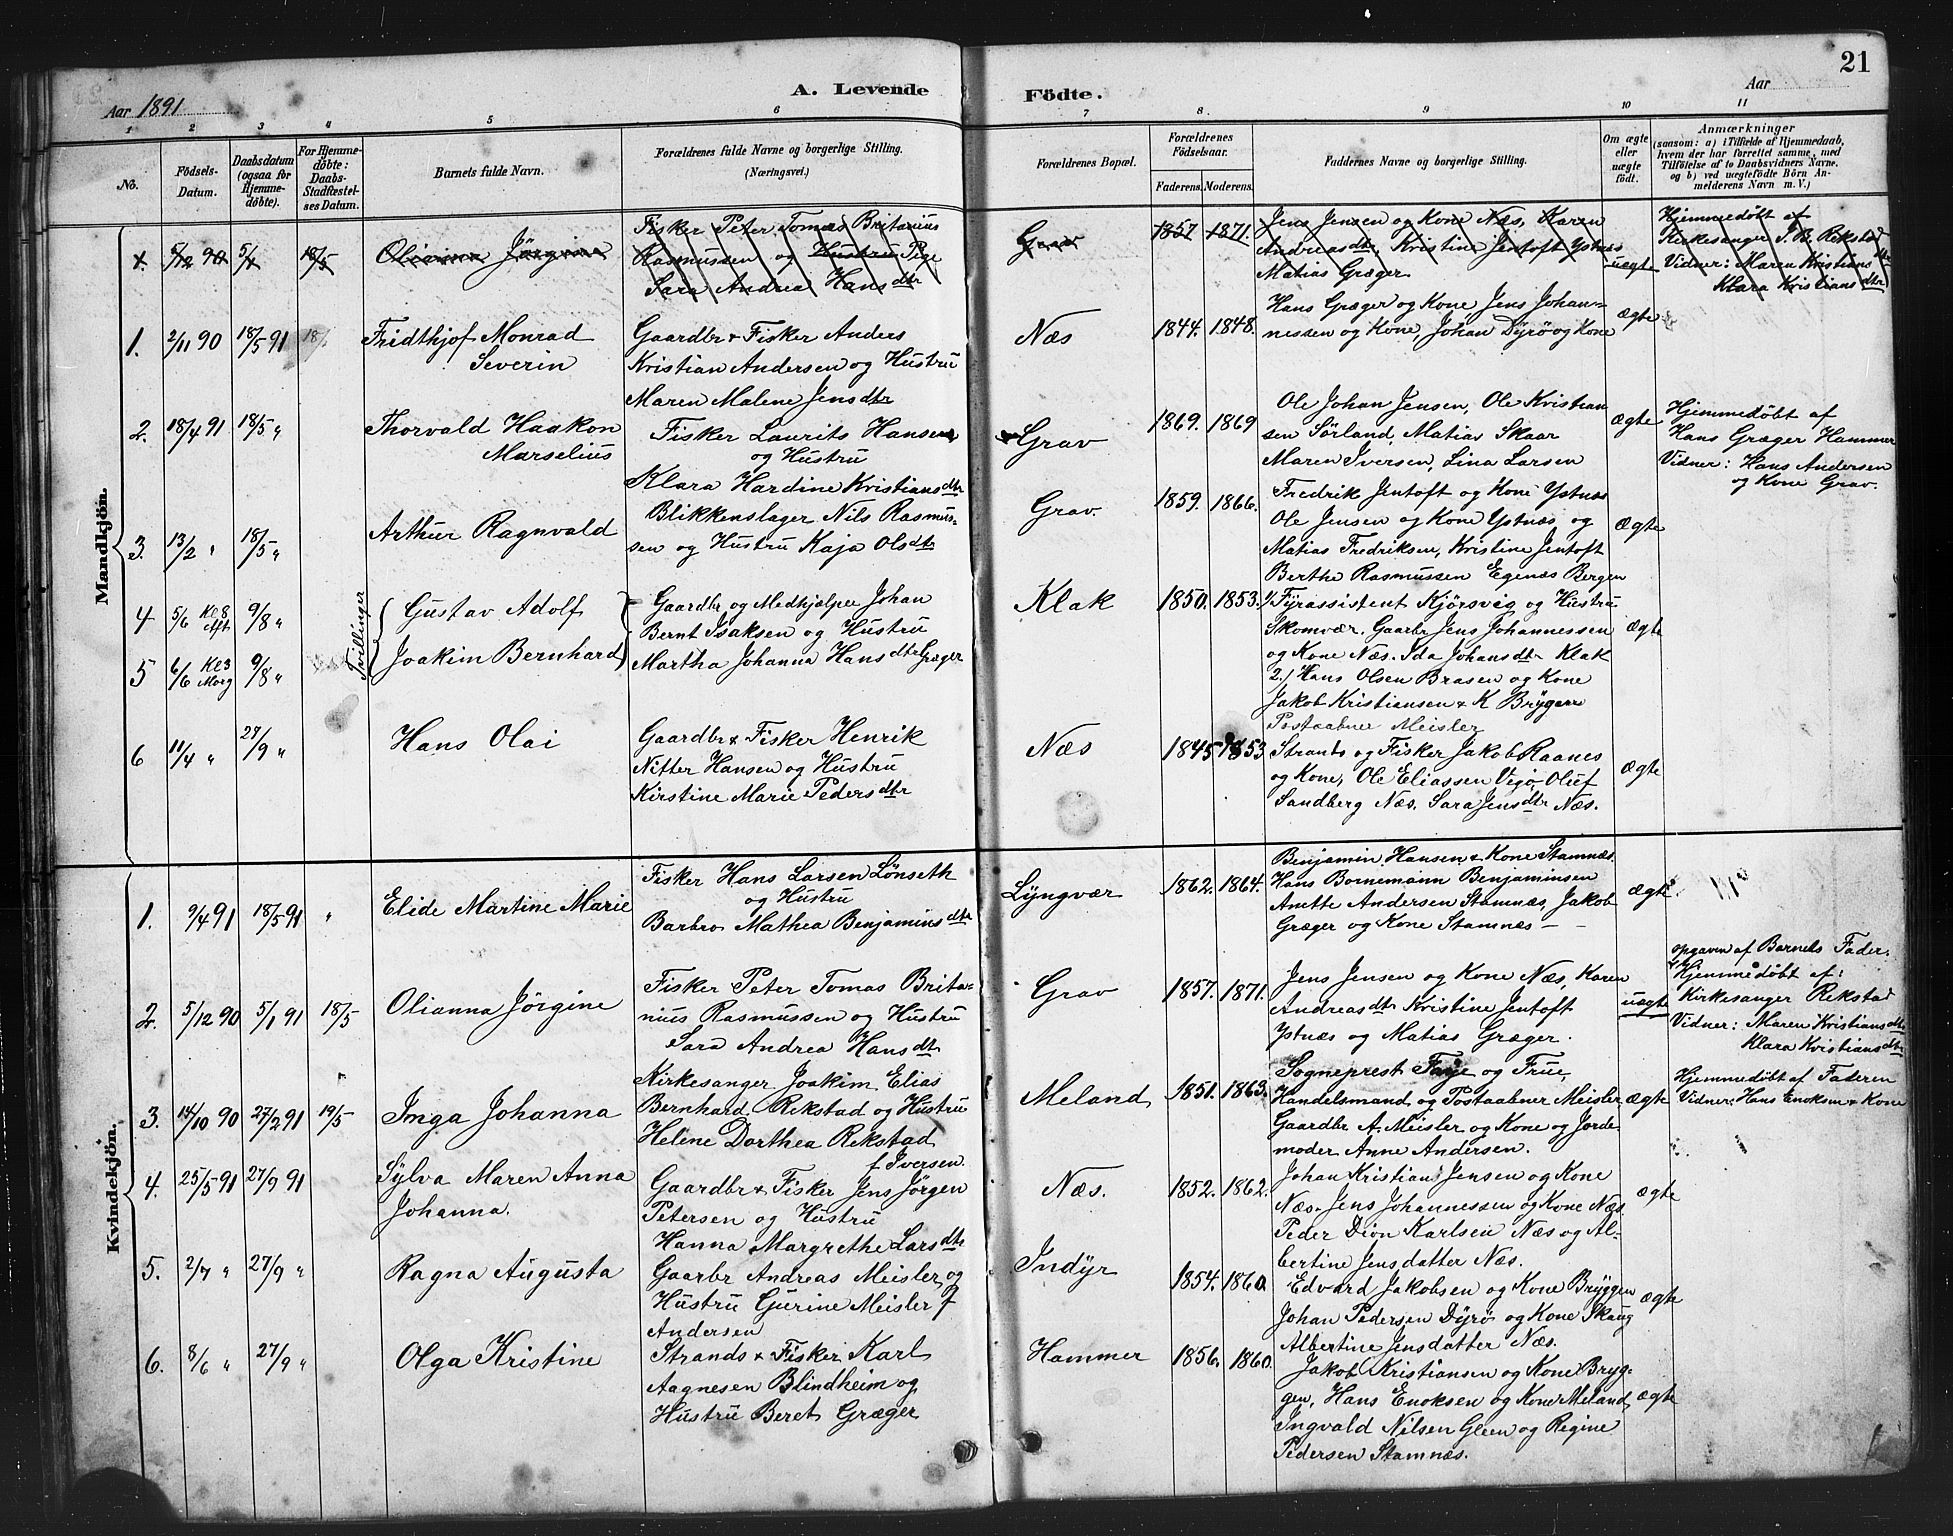 21
Aar 1891
A. Levende Födte.
Aar
1 2 3 4 5 6 7 8 9 10 11
No.
Födsels-
Datum.
Daabsdatum
(ogsaa for
Hjemme-
döbte).
For Hjemme-
döbte:
Daabs-
Stadfæstel-
ses Datum.
Barnets fulde Navn.
Forældrenes fulde Navne og borgerlige Stilling.
(Næringsvei.)
Forældrenes Bopæl.
Forældrenes
Födselsaar.
Faderens. Moderens.
Faddernes Navne og borgerlige Stilling.
Om ægte
eller
uægte
födt.
Anmærkninger
(saasom: a) i Tilfælde af Hjemmedaab,
hvem der har forrettet samme, med
Tilföielse af to Daabsvidners Navne,
og b) ved uægtefödte Börn An-
melderens Navn m. V.)
Mandkjön.
1. 5/12 90 5/1 18/5
Olianna Jörgine
Fisker Peter Tomas Britanius
Rasmussen og Hustru Pige
Sara Andrea Hansdtr
Grav
1857 1871.
Jens Jensen og Kone Næs, Karen
Andreasdtr, Kristine Jentoft Ystnes
Matias Græger
uægte
Hjemmedöbt af
Kirkesanger J. B. Rekstad
Vidner: Maren Kristiansdtr
Klara Kristiansdtr
1. 2/11 90 18/5 91 18/5
Fridthjof Monrad
Severin
Gaardbr & Fisker Anders
Kristian Andersen og Hustru
Maren Malene Jensdtr
Næs
1844. 1848.
Hans Græger og Kone, Jens Johan-
nessen og Kone, Johan Dÿrö og Kone
ægte
2. 18/4 91 18/5 "
Thorvald Haakon
Marselius
Fisker Laurits Hansen
og Hustru
Klara Hardine Kristiansdtr
Grav
1869. 1869
Ole Johan Jensen, Ole Kristian
sen Sörland, Matias Skaar
Maren Iversen, Lina Larsen
ægte
Hjemmedöbt af
Hans Græger Hammer
Vidner: Hans Andersen
og Kone Grav.
3. 13/2 " 18/5 "
Arthur Ragnvald
Blikkenslager Nils Rasmus-
sen og Hustru Kaja Olsdtr
Grav
1859. 1866.
Fredrik Jentoft og Kone Ystnæs
Ole Jensen og Kone Ystnæs og
Matias Fredriksen, Kristine Jentoft
Berthe Rasmussen Egenæs Bergen
ægte
Tvillinger
4 5/6 Kl 8 Aft 9/8 "
Gustav Adolf
5 6/6 Kl 3 Morg 9/8 "
Joakim Bernhard
Gaardbr og Medhjælper Johan
Bernt Isaksen og Hustru
Martha Johanna Hansdtr Græger
Klak
1850. 1853.
1/ Fÿrassistent Kjörsvig og Hustru
Skomvær. Gaarbr Jens Johannessen
og Kone Næs. Ida Johansdtr Klak
2./ Hans Olsen Brasen og Kone
Jakob Kristiansen & K Brÿgen
ægte
6 11/4 " 27/9 "
Hans Olai
Gaardbr & Fisker Henrik
Nitter Hansen og Hustru
Kirstine Marie Pedersdtr
Næs
1845 1853
Postaabner Meisler
Strands og Fisker Jakob Raanes
og Kone, Ole Eliassen Vegö, Oluf
Sandberg Næs. Sara Jensdtr Næs.
ægte
Kvindekjön.
1. 9/4 91 18/5 91 "
Elide Martine Marie
Fisker Hans Larsen Lönseth
og Hustru
Barbro Mathea Benjaminsdtr
Lÿngvær
1862. 1864.
Benjamin Hansen & Kone Stamnæs.
Hans Bornemann Benjaminsen
Anette Andersen Stamnæs, Jakob
Græger og Kone Stamnæs —
ægte
2. 5/12 90 5/1 91 18/5
Olianna Jörgine
Fisker Peter Tomas Brita-
nius Rasmussen og Hustru
Sara Andrea Hansdtr
Grav
1857. 1871.
Jens Jensen og Kone Næs, Karen
Andreasdtr Kristine Jentoft
Ystnæs og Matias Græger.
uægte
opgaven af Barnets Fader.
Hjemmedöbt af:
Kirkesanger Rekstad
Vidner: Maren Kristiansdtr
Klara Kristiansdtr
3. 14/10 90 27/2 91 19/5
Inga Johanna
Kirkesanger Joakim Elias
Bernhard Rekstad og Hustru
Helene Dorthea Rekstad
f Iversen.
Meland
1851. 1863.
Sogneprest Faye og Frue,
Handelsmand og Postaabner Meisler
Gaardbr A. Meisler og Kone og Jorde-
moder Anne Andersen.
ægte
Hjemmedöbt af Faderen
Vidner: Hans Enoksen & Kone
4. 25/5 91 27/9 91
Sÿlva Maren Anna
Johanna.
Gaardbr & Fisker Jens Jörgen
Petersen og Hustru
Hanna Margrethe Larsdtr
Næs.
1852. 1862.
Johan Kristian Jensen og Kone
Næs. Jens Johannessen og Kone Næs
Peder Dion Karlsen Næs og Al-
bertine Jensdatter Næs.
ægte
5. 2/7 " 27/9 "
Ragna Augusta
Gaarbr Andreas Meisler og
Hustru Gurine Meisler f
Andersen
Indÿr
1854. 1860.
Edvard Jakobsen og Kone Brÿggen
Johan Pedersen Dÿrö og Kone Skaug
Albertine Jensdatter Næs.
ægte
6. 8/6 " 27/9 "
Olga Kristine
Strands & Fisker Karl
Aagnesen Blindheim og
Hustru Beret Græger
Hammer
1856. 1860.
Jakob Kristiansen og Kone Bryg-
gen, Hans Enoksen og Kone Meland,
Ingvald Nilsen Gleen og Regine
Pedersen Stamnæs.
ægte